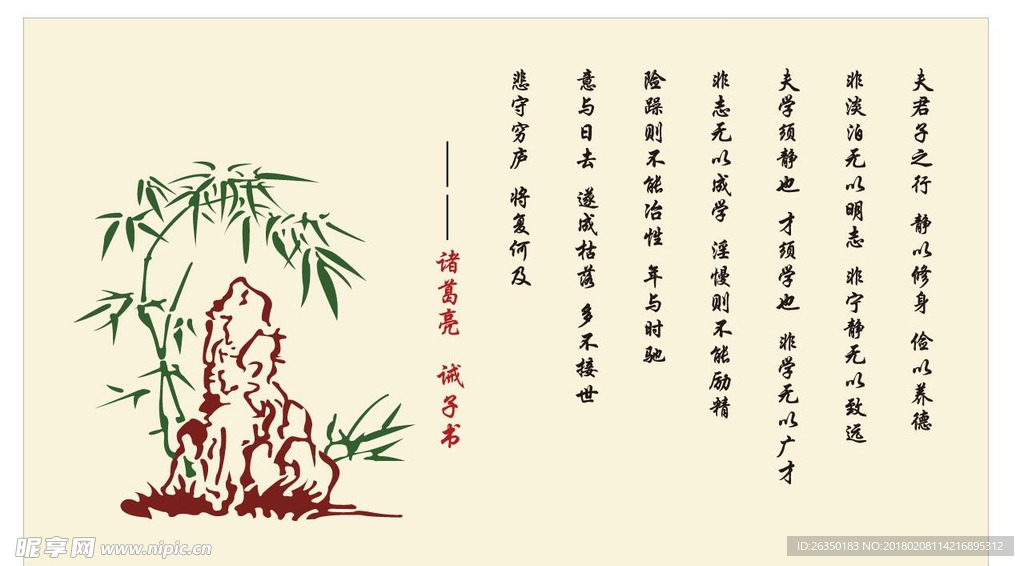 夫君子之行 静以修身 俭以养德
非淡泊无以明志 非宁静无以致远
夫学须静也 才须学也 非学无以广才
非志无以成学 淫慢则不能励精
险躁则不能冶性 年与时驰
意与日去 遂成枯落 多不接世
悲守穷庐 将复何及
——诸葛亮 诫子书
昵享网 www.nipic.cn
ID:26350183 NO:20180208114216895312